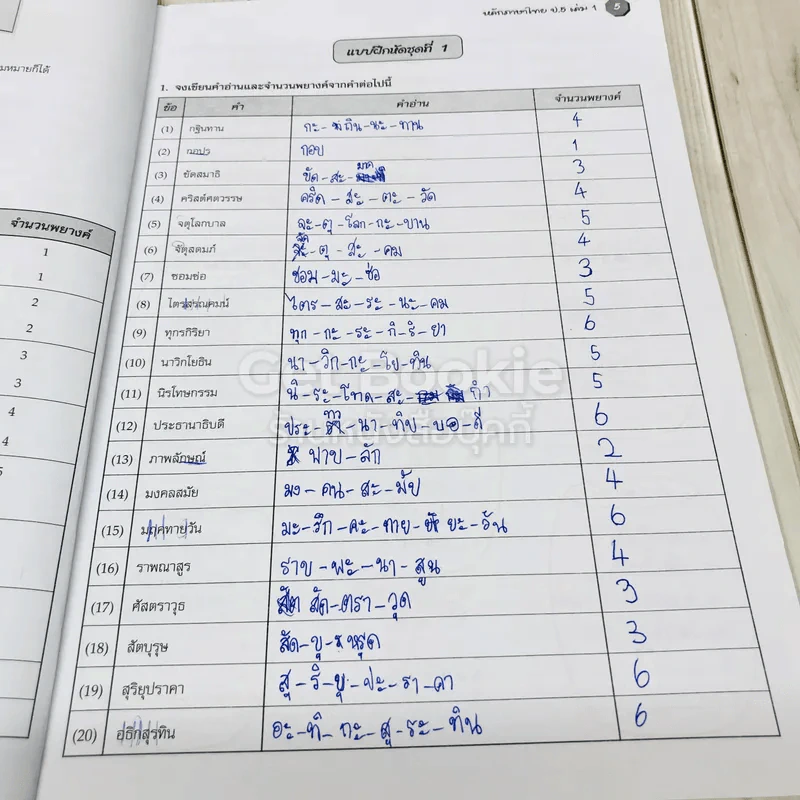 หลักภาษาไทย ป.5 เล่ม 1 5
แบบฝึกหัดชุดที่ 1
มหมายก็ได้
1. จงเขียนคำอ่านและจำนวนพยางค์จากคำต่อไปนี้
ข้อ คำ คำอ่าน จำนวนพยางค์
(1) กฐินทาน กะ-ถิน-นะ-ทาน 4
(2) กอปร กอบ 1
(3) ขัดสมาธิ ขัด-สะ-มาด 3
(4) คริสต์ศตวรรษ คริด-สะ-ตะ-วัด 4
(5) จตุโลกบาล จะ-ตุ-โลก-กะ-บาน 5
(6) จัตุสดมภ์ จัด-ตุ-สะ-คม 4
(7) ซอมซ่อ ซอม-มะ-ซ่อ 3
(8) ไตรสรณคมน์ ไตร-สะ-ระ-นะ-คม 5
(9) ทุกรกิริยา ทุก-กะ-ระ-กิ-ริ-ยา 6
(10) นาวิกโยธิน นา-วิก-กะ-โย-ทิน 5
(11) นิรโทษกรรม นิ-ระ-โทด-สะ-กำ 5
(12) ประธานาธิบดี ประ-ทา-นา-ทิบ-บอ-ดี 6
(13) ภาพลักษณ์ พาบ-ลัก 2
(14) มงคลสมัย มง-คน-สะ-มัย 4
(15) มฤคทายวัน มะ-รึก-คะ-ทาย-ยะ-วัน 6
(16) ราพณาสูร ราบ-พะ-นา-สูน 4
(17) ศัสตราวุธ สัด-ตรา-วุด 3
(18) สัตบุรุษ สัด-บุ-หรุด 3
(19) สุริยุปราคา สุ-ริ-ยุ-ปะ-รา-คา 6
(20) อธิกสุรทิน อะ-ทิ-กะ-สุ-ระ-ทิน 6
จำนวนพยางค์
1
1
2
2
3
3
4
4
5
Get Bookie
ร้านหนังสือบุ๊คกี้